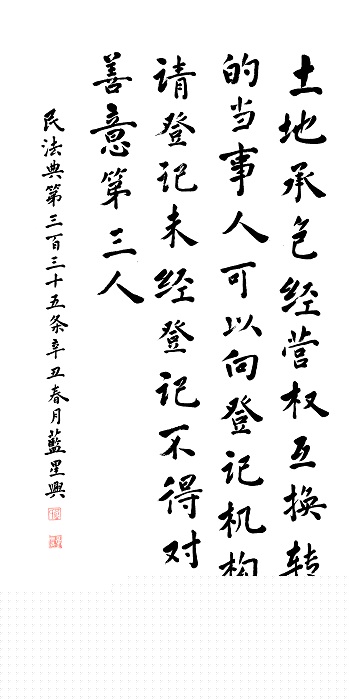 土地承包经营权互换转
的当事人可以向登记机构
请登记未经登记不得对
善意第三人
民法典第三百三十五条辛丑春月藍星興